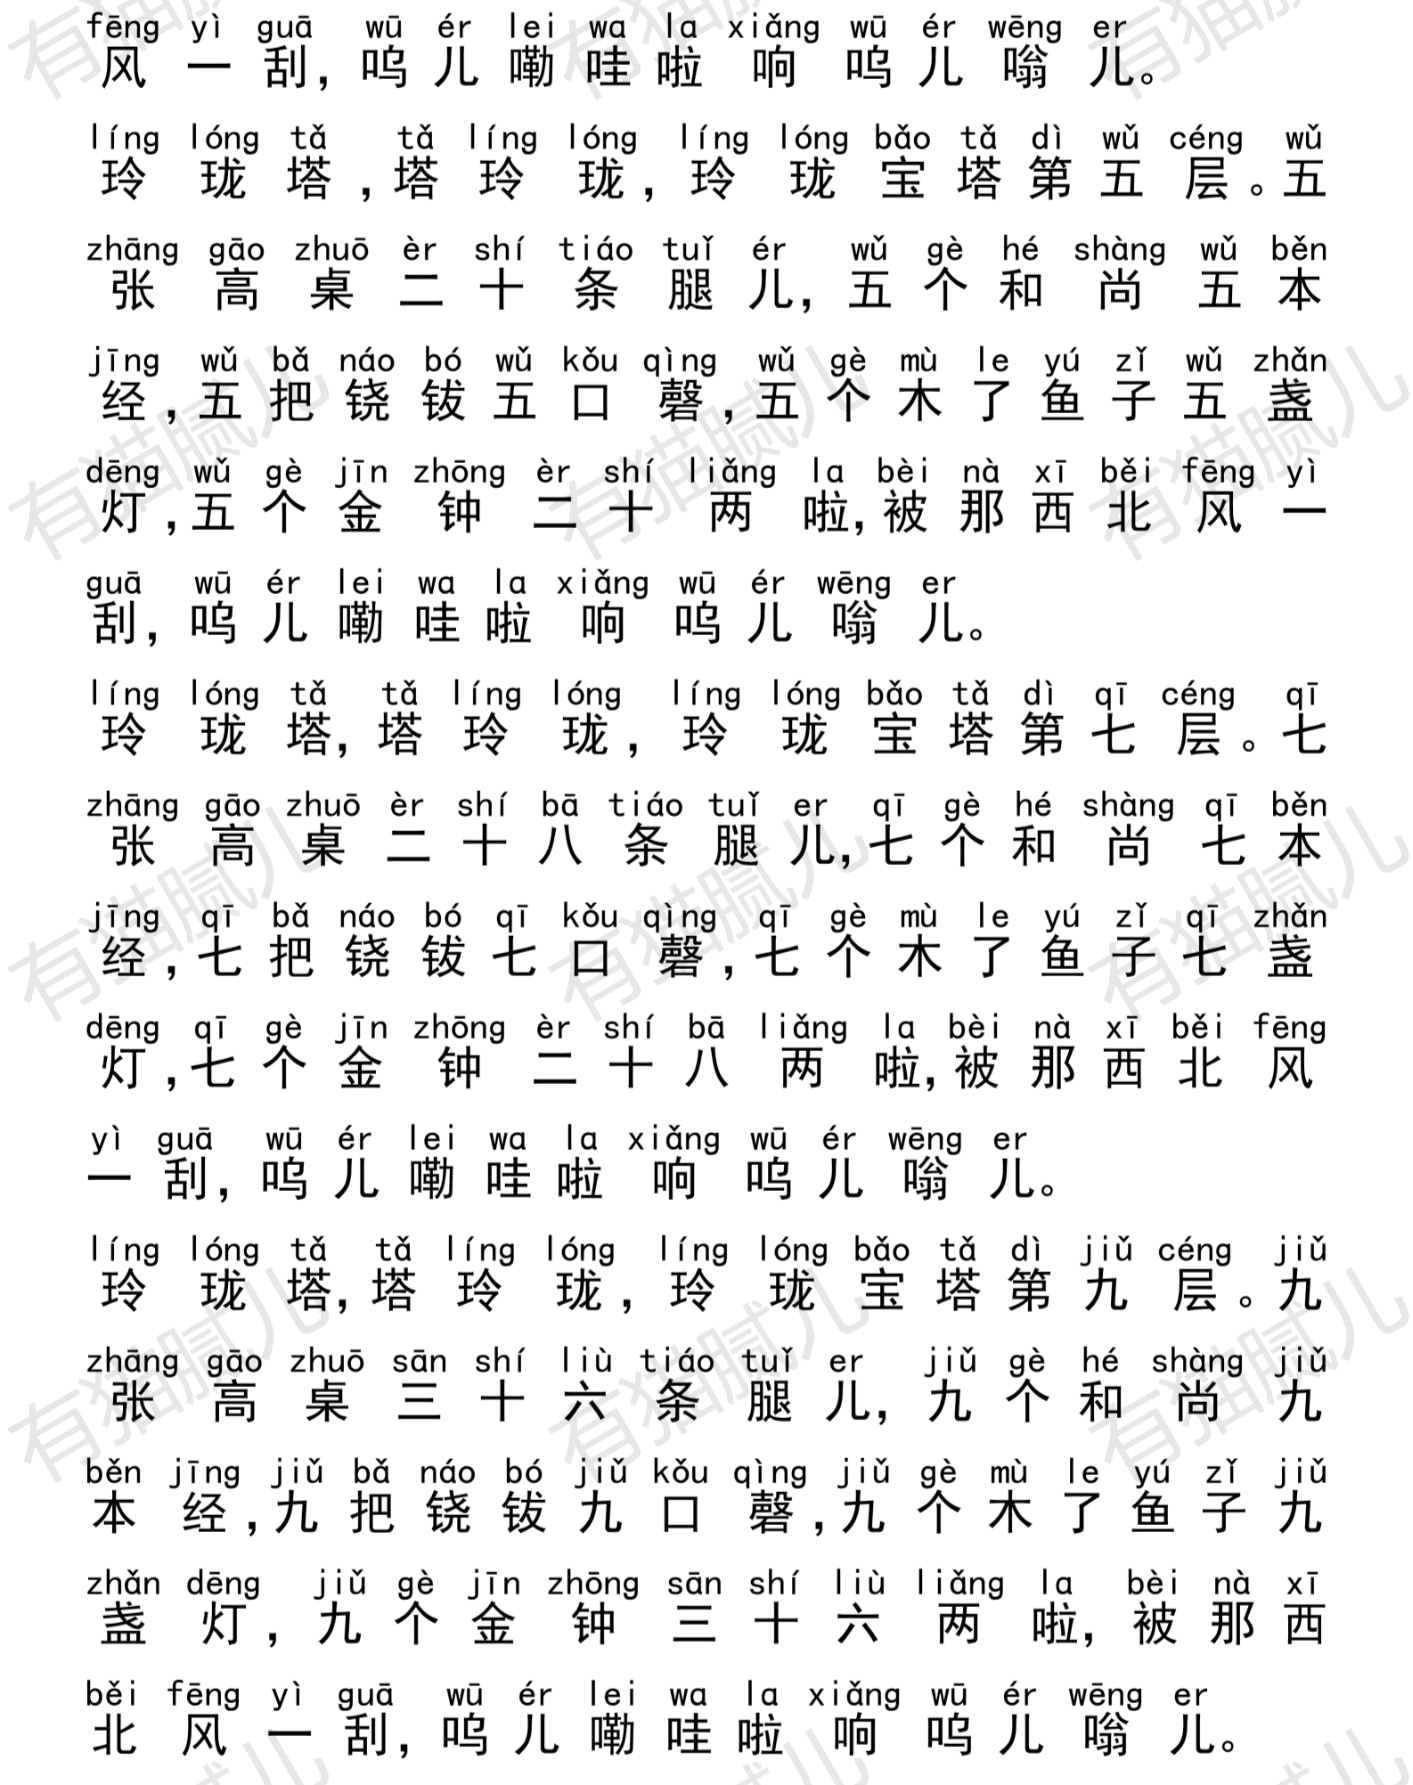 fēng yì guā wū ér lei wa la xiǎng wū ér wēng er
风一刮，呜儿嘞哇啦响呜儿嗡儿。
líng lóng tǎ tǎ líng lóng líng lóng bǎo tǎ dì wǔ céng wǔ
玲珑塔，塔玲珑，玲珑宝塔第五层。五
zhāng gāo zhuō èr shí tiáo tuǐ ér wǔ gè hé shàng wǔ běn
张高桌二十条腿儿，五个和尚五本
jīng wǔ bǎ náo bó wǔ kǒu qìng wǔ gè mù le yú zǐ wǔ zhǎn
经，五把铙钹五口磬，五个木了鱼子五盏
dēng wǔ gè jīn zhōng èr shí liǎng la bèi nà xī běi fēng yì
灯，五个金钟二十两啦，被那西北风一
guā wū ér lei wa la xiǎng wū ér wēng er
刮，呜儿嘞哇啦响呜儿嗡儿。
líng lóng tǎ tǎ líng lóng líng lóng bǎo tǎ dì qī céng qī
玲珑塔，塔玲珑，玲珑宝塔第七层。七
zhāng gāo zhuō èr shí bā tiáo tuǐ er qī gè hé shàng qī běn
张高桌二十八条腿儿，七个和尚七本
jīng qī bǎ náo bó qī kǒu qìng qī gè mù le yú zǐ qī zhǎn
经，七把铙钹七口磬，七个木了鱼子七盏
dēng qī gè jīn zhōng èr shí bā liǎng la bèi nà xī běi fēng
灯，七个金钟二十八两啦，被那西北风
yì guā wū ér lei wa la xiǎng wū ér wēng er
一刮，呜儿嘞哇啦响呜儿嗡儿。
líng lóng tǎ tǎ líng lóng líng lóng bǎo tǎ dì jiǔ céng jiǔ
玲珑塔，塔玲珑，玲珑宝塔第九层。九
zhāng gāo zhuō sān shí liù tiáo tuǐ er jiǔ gè hé shàng jiǔ
张高桌三十六条腿儿，九个和尚九
běn jīng jiǔ bǎ náo bó jiǔ kǒu qìng jiǔ gè mù le yú zǐ jiǔ
本经，九把铙钹九口磬，九个木了鱼子九
zhǎn dēng jiǔ gè jīn zhōng sān shí liù liǎng la bèi nà xī
盏灯，九个金钟三十六两啦，被那西
běi fēng yì guā wū ér lei wa la xiǎng wū ér wēng er
北风一刮，呜儿嘞哇啦响呜儿嗡儿。
有猫腻儿
有猫腻儿
有猫腻儿
有猫腻儿
有猫腻儿
有猫腻儿
有猫腻儿
有猫腻儿
有猫腻儿